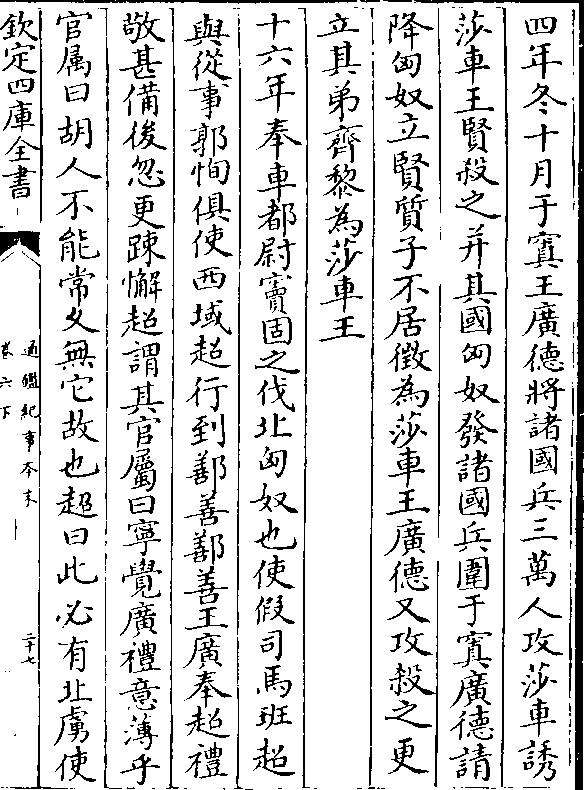 四年冬十月于寘王廣德將諸國兵三萬人攻莎車誘
莎車王賢殺之并其國匈奴發諸國兵圍于寘廣德請
降匈奴立賢質子不居徵為莎車王廣德又攻殺之更
立其弟齊黎為莎車王
十六年奉車都尉竇固之伐北匈奴也使假司馬班超
與從事郭恂俱使西域超行到鄯善鄯善王廣奉超禮
敬甚備後忽更踈懈超謂其官屬曰寧覺廣禮意薄乎
官属曰胡人不能常久無它故也超曰此必有北虜使
欽定四庫全書
通鑑紀事本末
卷六下
二十七